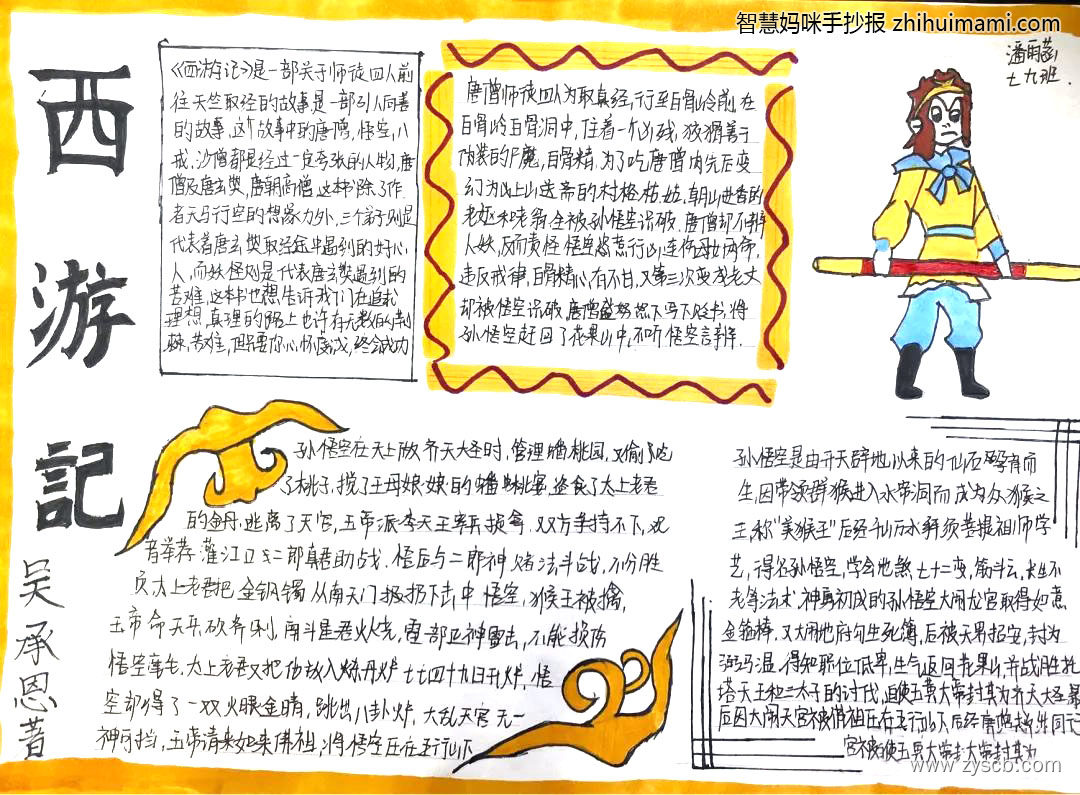 智慧妈咪手抄报 zhihuimami.com
西游記
吴承恩著
潘雨
七九班
《西游记》是一部关于师徒四人前
往天竺取经的故事是一部引人向善
的故事,这个故事中的唐僧,悟空,八
戒,沙僧都是经过一定夸张的人物,唐
僧及唐玄奘,唐朝高僧,这本书除了作
者天马行空的想象力外,三个弟子则是
代表着唐玄奘取经途中遇到的好心
人,而妖怪则是代表唐玄奘遇到的
苦难,这本书也想告诉我们在追求
理想,真理的路上也许有无数的荆
棘,苦难,但只要你心怀虔诚,终会成功
唐僧师徒四人为取真经,行至白骨岭前,在
白骨岭白骨洞中,住着一个凶残,狡猾善于
伪装的尸魔,白骨精,为了吃唐僧肉先后变
幻为上山送斋的村格枯姑,朝山进香的
老妪和老翁,全被孙悟空识破,唐僧却不辨
人妖,反而责怪悟空恣意行凶,连伤母女两命,
违反戒律,白骨精心有不甘,又第三次变成老丈
却被悟空识破,唐僧盛怒下写下贬书,将
孙悟空赶回了花果山中,不听悟空言
孙悟空在天上做齐天大圣时,管理蟠桃园,又偷吃
了桃子,搅了王母娘娘的蟠桃宴,盗食了太上老君
的金丹,逃离了天宫,玉帝派李天王率兵捉拿,双方争持不下,观
音举荐灌江口二郎真君助战,悟后与二郎神赌法斗战,不分胜
负,太上老君把金钢镯从南天门扔下击中悟空,猴王被擒,
玉帝命天兵砍斧剁,南斗星君火烧,雷部正神雷击,不能损伤
悟空毫毛,太上老君又把他放入炼丹炉七七四十九日开炉,悟
空却得了一双火眼金睛,跳出八卦炉,大乱天宫无一
神可挡,玉帝请来如来佛祖,将悟空压在五行山下
孙悟空是由开天辟地以来的仙石孕育而
生,因带领群猴进入水帘洞而成为众猴之
王,称"美猴王"后经千山万水拜须菩提祖师学
艺,得名孙悟空,学会地煞七十二变,筋斗云,长生不
老等法术,神勇初成的孙悟空大闹龙宫取得如意
金箍棒,又大闹地府勾生死簿,后被天界招安,封为
弼马温,得知职位低卑,生气返回花果山,并战胜托
塔天王和三太子的讨伐,迫使玉黄大帝封其为齐天大圣
后因大闹天宫被佛祖压在五行山下后经唐
宫被迫使玉黄大帝封大帝封其为
www.zyscb.com